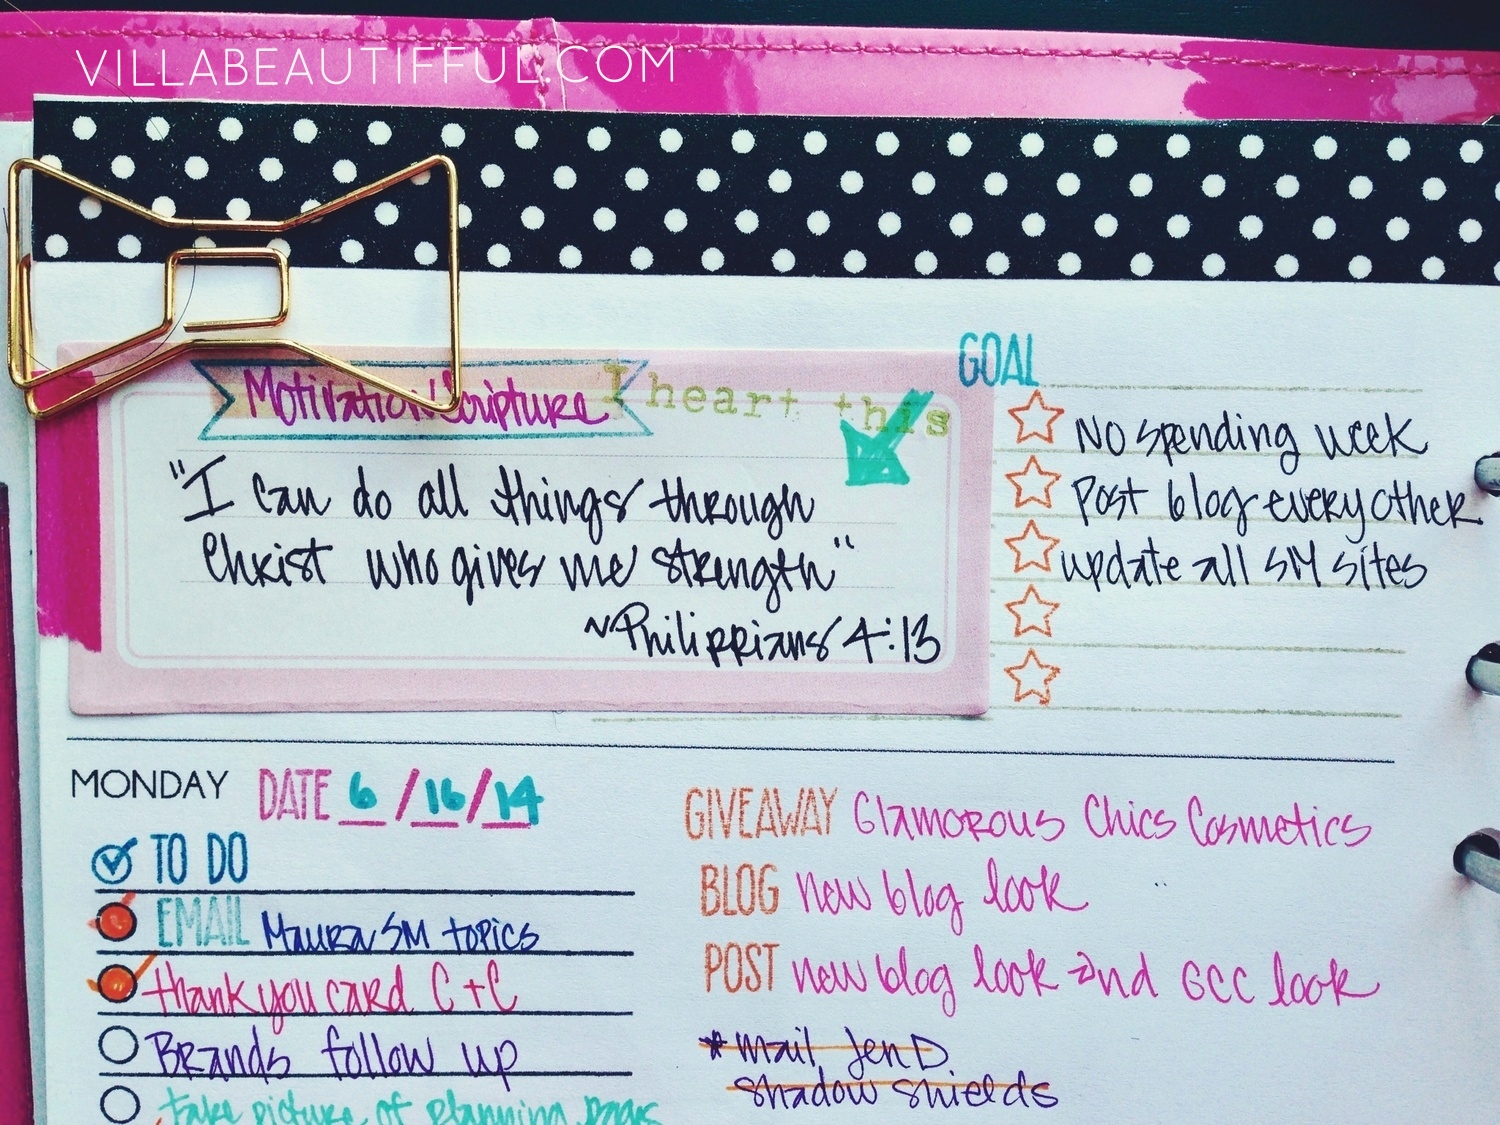 VILLABEAUTIFFUL.COM
Motivation/Scripture
I heart this
"I can do all things through
Christ who gives me strength"
~Philippians 4:13
GOAL
No spending week
Post blog every other
update all SM sites
MONDAY DATE 6/16/14
TO DO
EMAIL Maura SM topics
thank you card C+C
Brands follow up
take picture of planning pages
GIVEAWAY Glamorous Chics Cosmetics
BLOG New blog look
POST new blog look and GCC look
*mail Jen D.
shadow shields